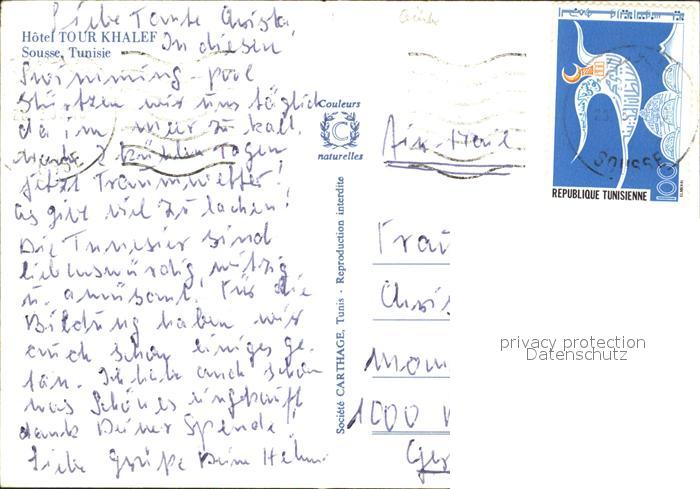 Liebe Tante Christa,
Hôtel TOUR KHALEF
Sousse, Tunisie
In diesen
Swimming-pool
stürtzen wir uns täglich
da im Meer zu kalt.
2 kühlen Tagen
jetzt Traumwetter!
es gibt viel zu lachen!
Die Tunesier sind
liebenswürdig, witzig
u. amüsant. Für die
Bildung haben wir
auch schon einiges ge-
tan. Ich habe auch schon
was Schönes eingekauft
dank Deiner Spende!
Liebe Grüße Deine
Couleurs
C
naturelles
Société CARTHAGE, Tunis - Reproduction interdite
Air-Mail
Frau
Chris
1000
Ger
SOUSSE
100
REPUBLIQUE TUNISIENNE
privacy protection
Datenschutz